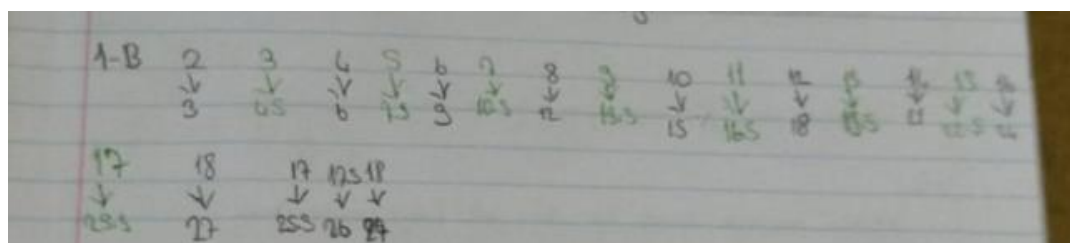 1-B 2 3 4 5 6 7 8 9 10 11 12 13 14 15 16
↓ ↓ ↓ ↓ ↓ ↓ ↓ ↓ ↓ ↓ ↓ ↓ ↓ ↓ ↓
3 45 6 75 9 105 12 135 15 165 18 195 21 225 24
17 18 17 175 18
↓ ↓ ↓ ↓ ↓
255 27 255 26 27